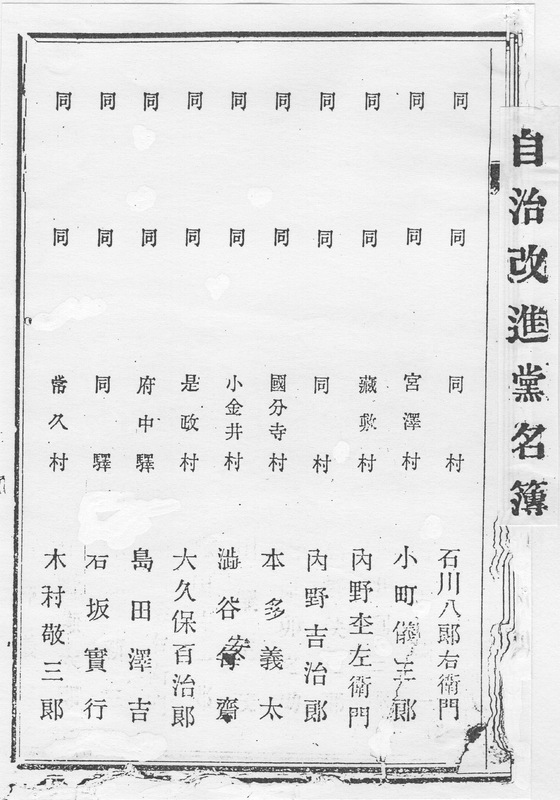 自治改進黨名簿
同 同 同村 石川八郎右衞門
同 同 宮澤村 小町 郎
同 同 藏敷村 內野杢左衞門
同 同 同村 內野吉治郎
同 同 國分寺村 本多義太
同 同 小金井村 澁谷 齋
同 同 是政村 大久保百治郎
同 同 府中驛 島田澤吉
同 同 同驛 石坂實行
同 同 常久村 木村敬三郎